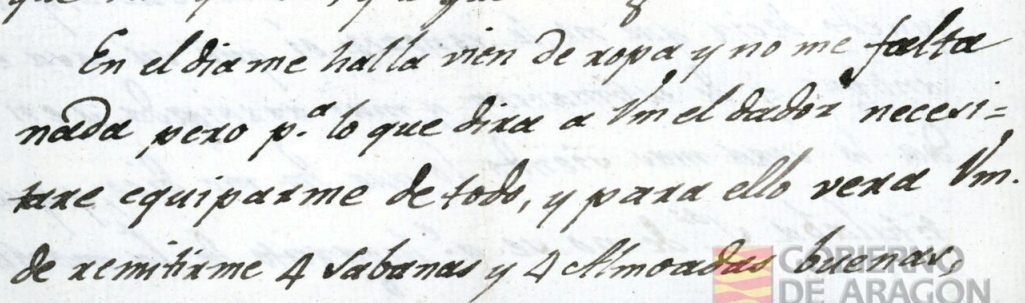 En el dia me halla vien de ropa y no me falta
nada pero p.ª lo que dira a Vm el dador necesi=
tare equiparme de todo, y para ello vera Vm.
de remitirme 4 Sabanas y 4 Almoadas buenas,
GOBIERNO
DE ARAGON